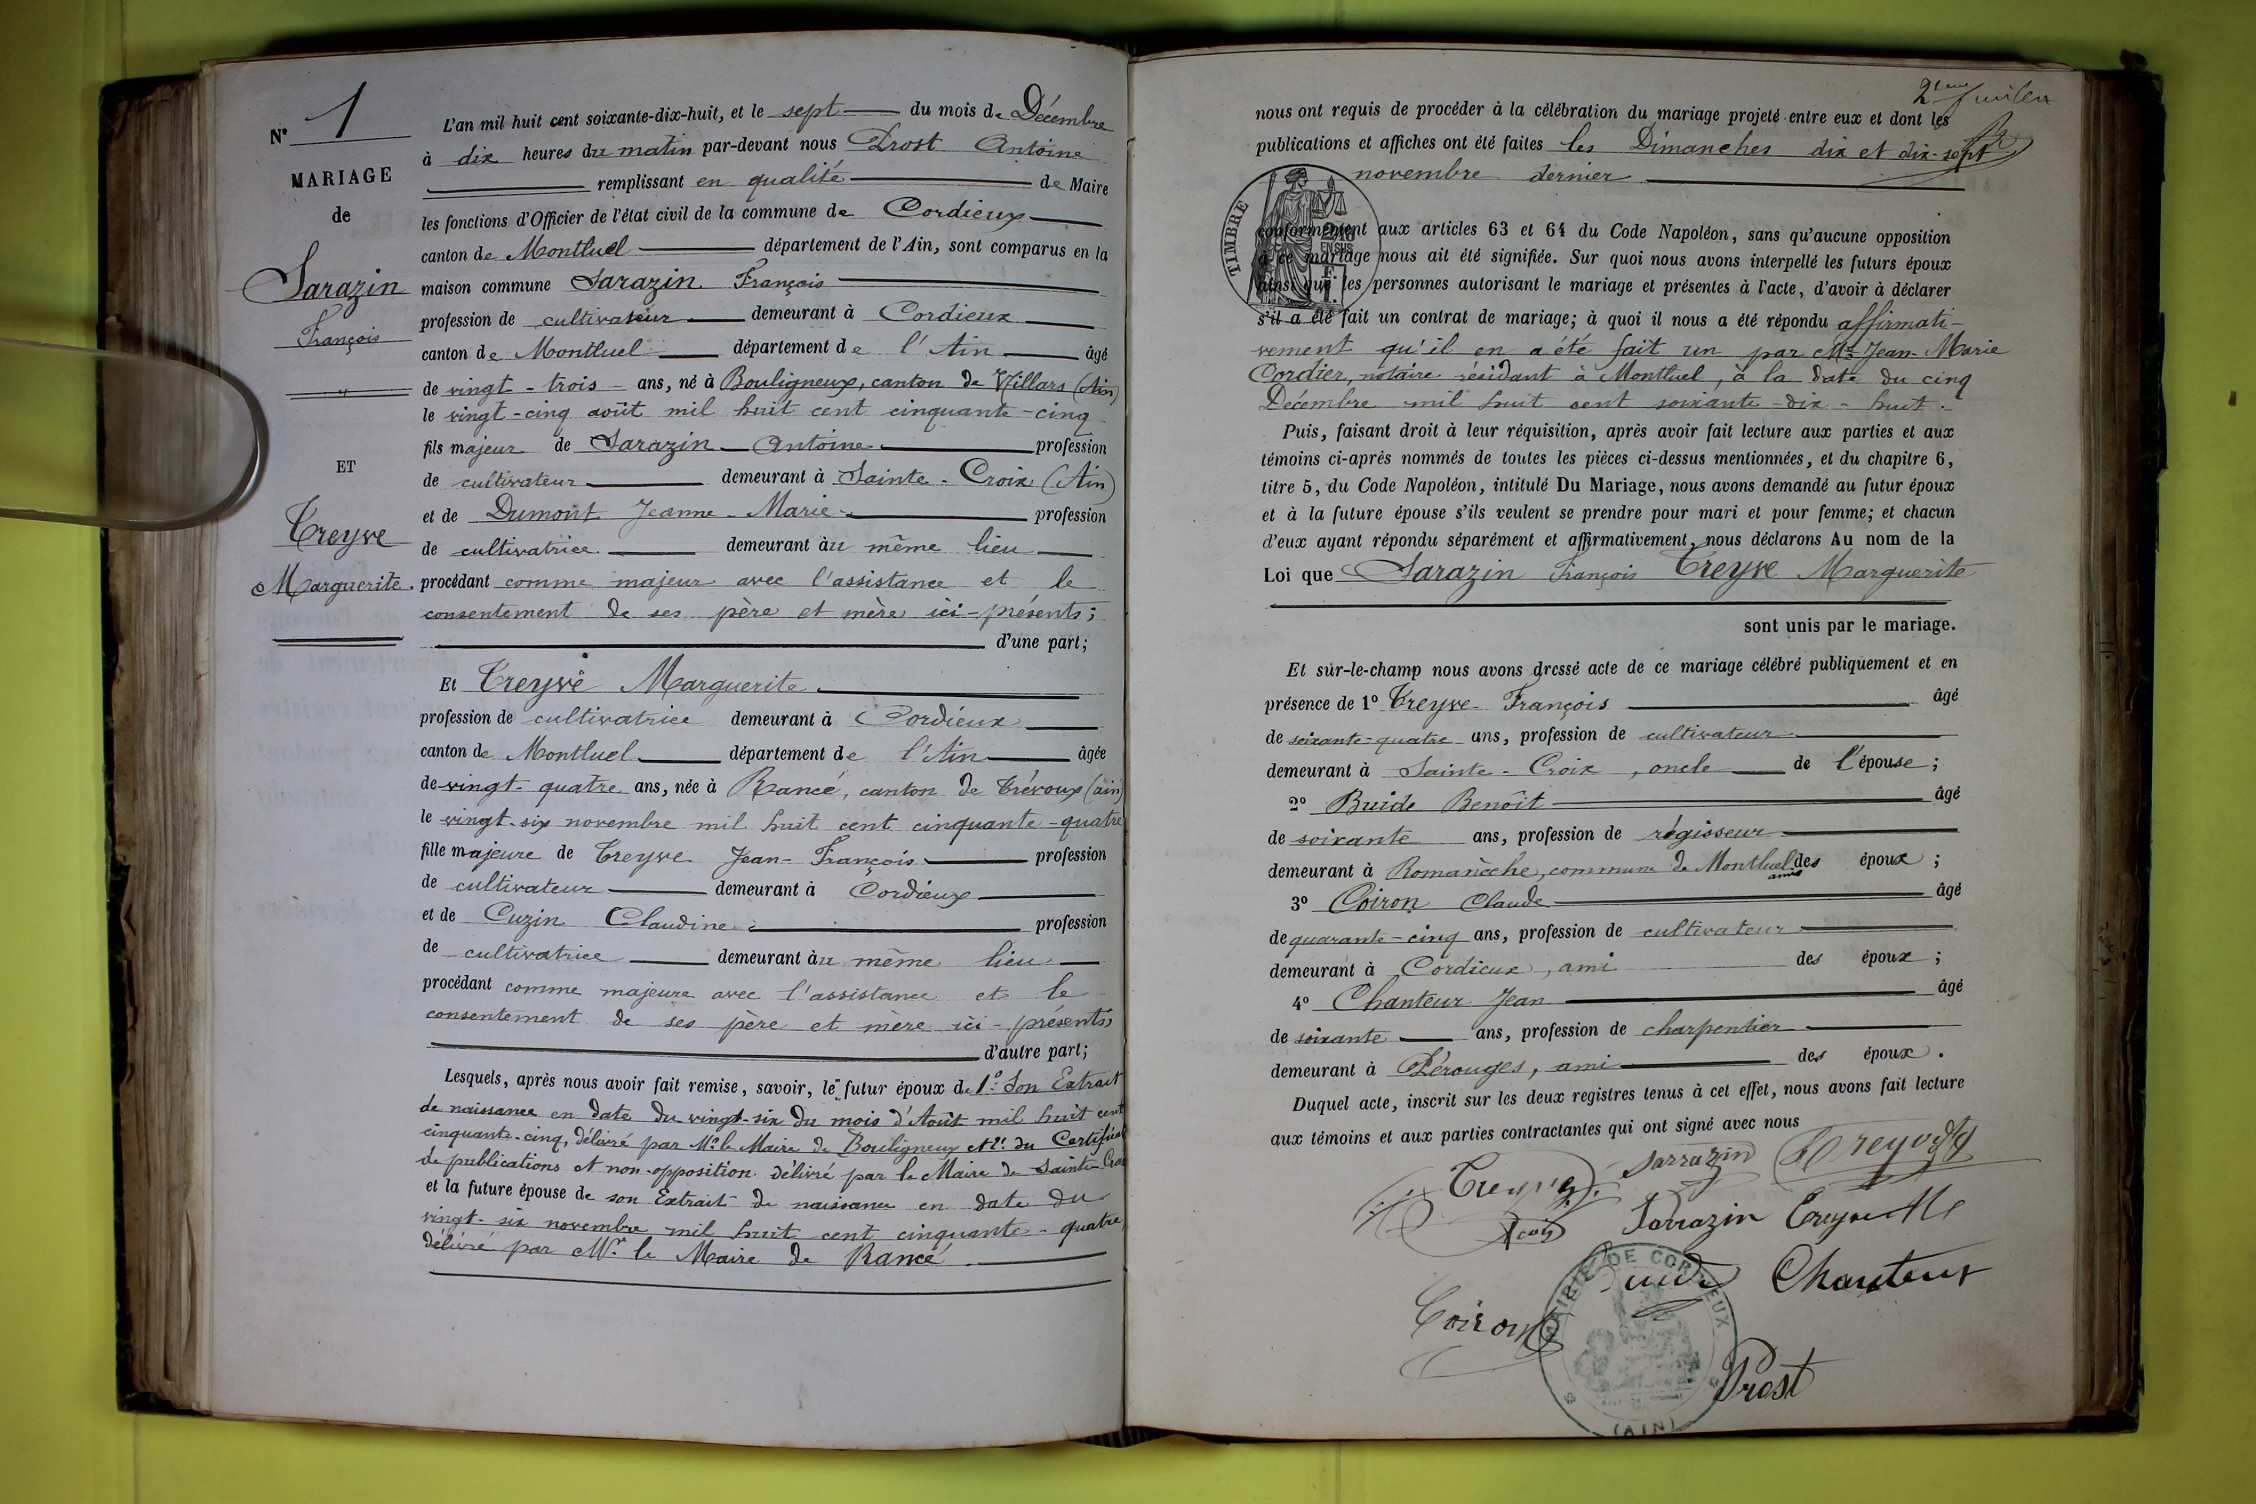 N° 1
MARIAGE
de
Sarazin
François
ET
Treyve
Marguerite.
L'an mil huit cent soixante-dix-huit, et le sept du mois de Décembre
à dix heures du matin par-devant nous Prost Antoine
remplissant en qualité de Maire
les fonctions d'Officier de l'état civil de la commune de Cordieux
canton de Montluel département de l'Ain, sont comparus en la
maison commune Sarazin François
profession de cultivateur demeurant à Cordieux
canton de Montluel département de l'Ain âgé
de vingt-trois ans, né à Bouligneux, canton de Villars (Ain)
le vingt-cinq août mil huit cent cinquante-cinq
fils majeur de Sarazin Antoine profession
de cultivateur demeurant à Sainte-Croix (Ain)
et de Dumont Jeanne-Marie profession
de cultivatrice demeurant au même lieu
procédant comme majeur avec l'assistance et le
consentement de ses père et mère ici-présents;
d'une part;
Et Treyve Marguerite
profession de cultivatrice demeurant à Cordieux
canton de Montluel département de l'Ain âgée
de vingt-quatre ans, née à Rancé, canton de Trévoux (ain)
le vingt-six novembre mil huit cent cinquante-quatre
fille majeure de Treyve Jean-François profession
de cultivateur demeurant à Cordieux
et de Cuzin Claudine profession
de cultivatrice demeurant au même lieu
procédant comme majeure avec l'assistance et le
consentement de ses père et mère ici-présents
d'autre part;
Lesquels, après nous avoir fait remise, savoir, le futur époux de 1° Son Extrait
de naissance en date du vingt-six du mois d'Août mil huit cent
cinquante-cinq, délivré par Mr. le Maire de Bouligneux et 2° du Certificat
de publications et non-opposition délivré par le Maire de Sainte-Croix
et la future épouse de son Extrait de naissance en date du
vingt-six novembre mil huit cent cinquante-quatre,
délivré par Mr. le Maire de Rancé.
2eme
nous ont requis de procéder à la célébration du mariage projeté entre eux et dont les
publications et affiches ont été faites les Dimanches dix et dix-sept
novembre dernier
TIMBRE
conformément aux articles 63 et 64 du Code Napoléon, sans qu'aucune opposition
à ce mariage nous ait été signifiée. Sur quoi nous avons interpellé les futurs époux
ainsi que les personnes autorisant le mariage et présentes à l'acte, d'avoir à déclarer
s'il a été fait un contrat de mariage; à quoi il nous a été répondu affirmati-
vement qu'il en a été fait un par Me Jean-Marie
Cordier, notaire résidant à Montluel, à la date du cinq
Décembre mil huit cent soixante-dix-huit.
Puis, faisant droit à leur réquisition, après avoir fait lecture aux parties et aux
témoins ci-après nommés de toutes les pièces ci-dessus mentionnées, et du chapitre 6,
titre 5, du Code Napoléon, intitulé Du Mariage, nous avons demandé au futur époux
et à la future épouse s'ils veulent se prendre pour mari et pour femme; et chacun
d'eux ayant répondu séparément et affirmativement, nous déclarons Au nom de la
Loi que Sarazin François Treyve Marguerite
sont unis par le mariage.
Et sur-le-champ nous avons dressé acte de ce mariage célébré publiquement et en
présence de 1° Treyve François âgé
de soixante-quatre ans, profession de cultivateur
demeurant à Sainte-Croix, oncle de l'épouse;
2° Buide Benoît âgé
de soixante ans, profession de régisseur
demeurant à Romanèche, commune de Montluel amis des époux;
3° Coiron Claude âgé
de quarante-cinq ans, profession de cultivateur
demeurant à Cordieux, ami des époux;
4° Chanteur Jean âgé
de soixante ans, profession de charpentier
demeurant à Pérouges, ami des époux.
Duquel acte, inscrit sur les deux registres tenus à cet effet, nous avons fait lecture
aux témoins et aux parties contractantes qui ont signé avec nous
Treyve Sarrazin Treyve
Sarrazin Treyve
Chanteur
Coiron
MAIRIE DE CORDIEUX
(AIN)
Prost